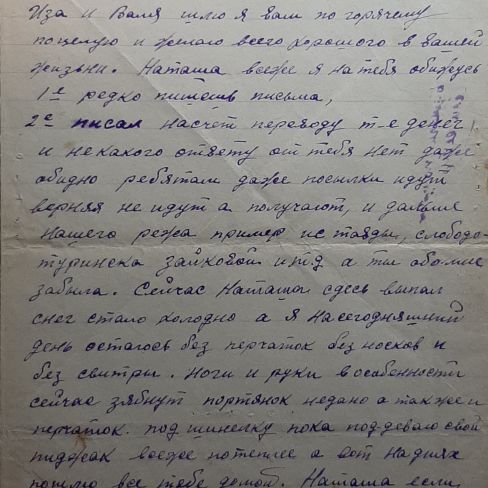 Иза и Валя шлю я вам по горячему
поцелую и желаю всего хорошого в вашей
жизьни. Наташа всеже я на тебя обижусь
1е редко пишешь письма,
2е писал насчет переводу т-е денег
и некакого ответу от тебя нет даже
обидно ребятам даже посылки идут
верняя не идут а получают, и дальше
нашего режа пример ис тавды, слободо-
туринска зайковой итд а ты обо мне
забыла. Сейчас Наташа сдесь выпал
снег стало холодно а я на сегодняшний
день остаюсь без перчаток без носков и
без свитры. Ноги и руки в особенности
сейчас зябнут портянок недано а так же и
перчаток. под шинелку пока поддеваю свой
пиджак всеже потеплее а вот на днях
пошлю все тебе домой. Наташа если